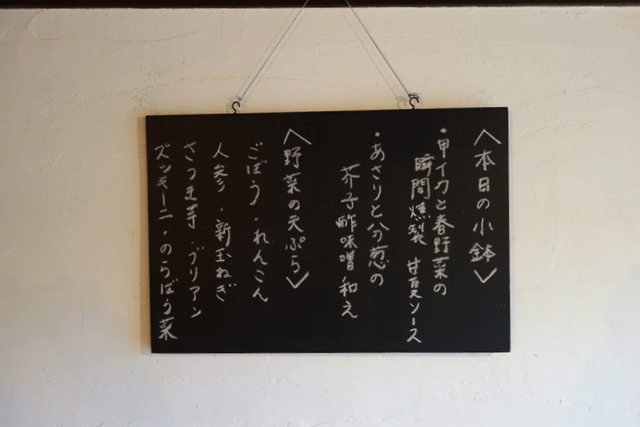 〈本日の小鉢〉
・甲イカと春野菜の
瞬間燻製 甘夏ソース
・あさりと分葱の
芥子酢味噌和え
〈野菜の天ぷら〉
ごぼう・れんこん
人参・新玉ねぎ
さつま芋・ブリアン
ズッキーニ・のらぼう菜